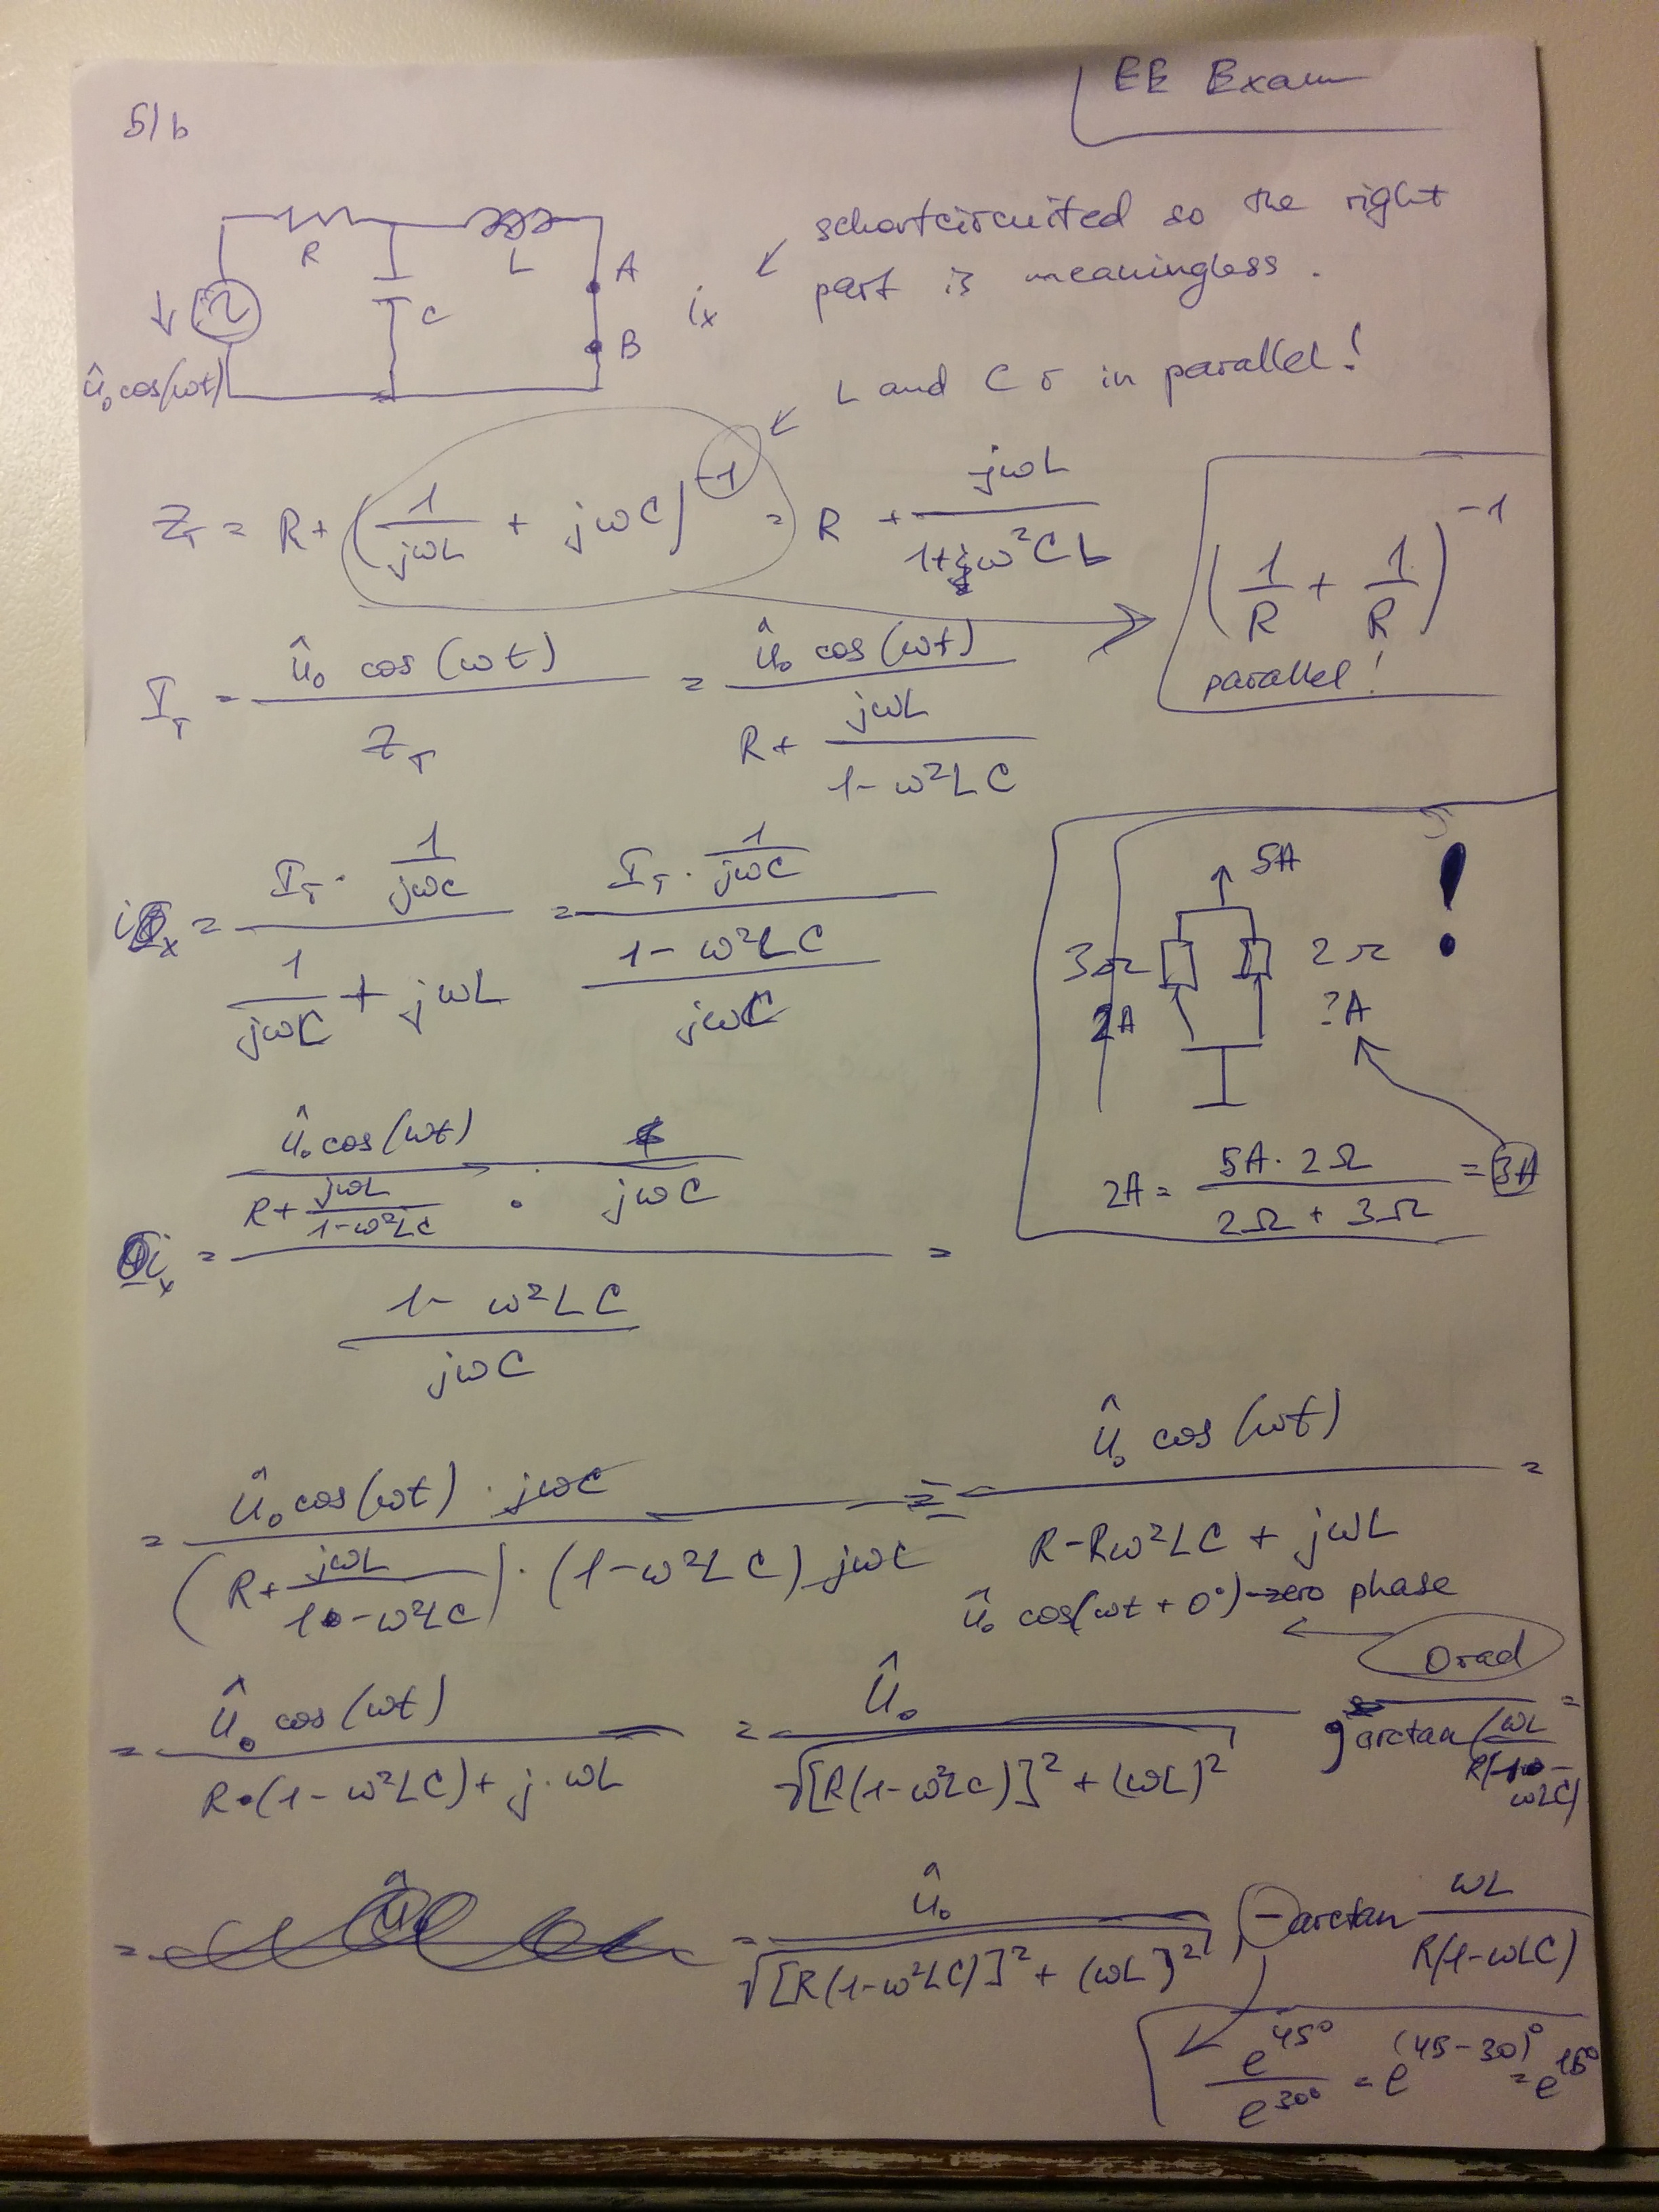 EE Exam
5/b
R
L
C
A
B
iₓ
û₀ cos(ωt)
schortcircuited so the right
part is meaningless.
L and C r in parallel!
Z_T = R + (1/(jωL) + jωC)⁻¹ = R + jωL/(1+jω²CL)
(1/R + 1/R)⁻¹
parallel!
I_T = û₀ cos(ωt)/Z_T = û₀ cos(ωt)/(R + jωL/(1-ω²LC))
iₓ = (I_T · 1/(jωC))/(1/(jωC) + jωL) = (I_T · 1/(jωC))/((1-ω²LC)/(jωC))
5A
!
3Ω
2Ω
2A
?A
2A = (5A · 2Ω)/(2Ω + 3Ω) = 3A
iₓ = (û₀ cos(ωt)/(R + jωL/(1-ω²LC)) · 1/(jωC))/((1-ω²LC)/(jωC)) =
= (û₀ cos(ωt) · jωC)/((R + jωL/(1-ω²LC)) · (1-ω²LC) jωC) = û₀ cos(ωt)/(R-Rω²LC + jωL) =
û₀ cos(ωt + 0°) zero phase
0 rad
= û₀ cos(ωt)/(R·(1-ω²LC) + j·ωL) = û₀/√([R(1-ω²LC)]² + (ωL)²) arctan(ωL/R(1-ωLC)) =
= = û₀/√([R(1-ω²LC)]² + (ωL)²) , -arctan ωL/(R(1-ωLC))
e^45°/e^30° = e^(45-30)° = e^15°